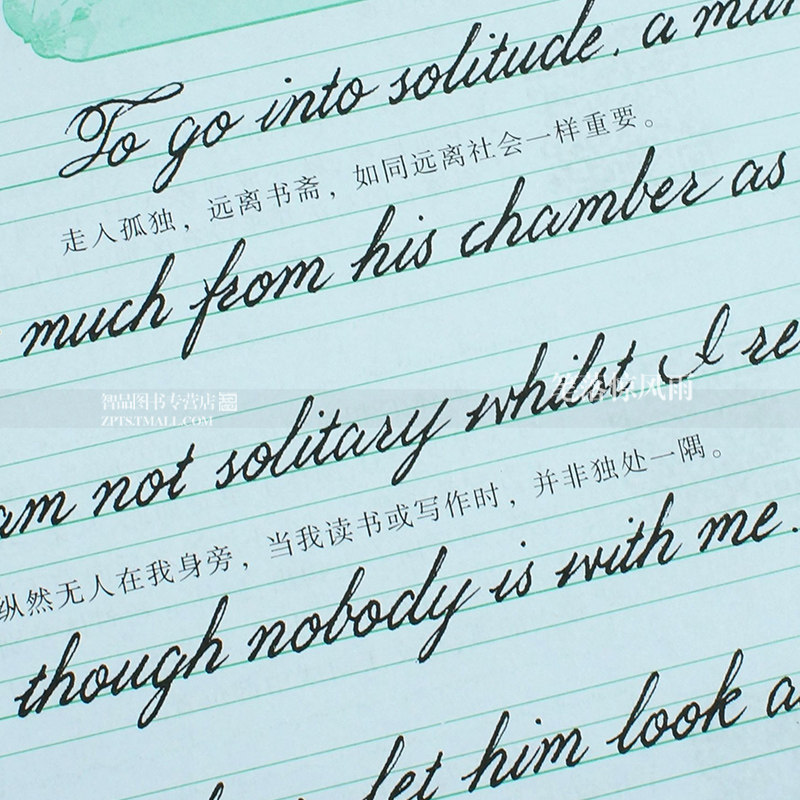 To go into solitude, a man
走入孤独，远离书斋，如同远离社会一样重要。
much from his chamber as
智品图书专营店
ZPTS.TMALL.COM
笑落惊风雨
am not solitary whilst I re
纵然无人在我身旁，当我读书或写作时，并非独处一隅。
though nobody is with me.
let him look a